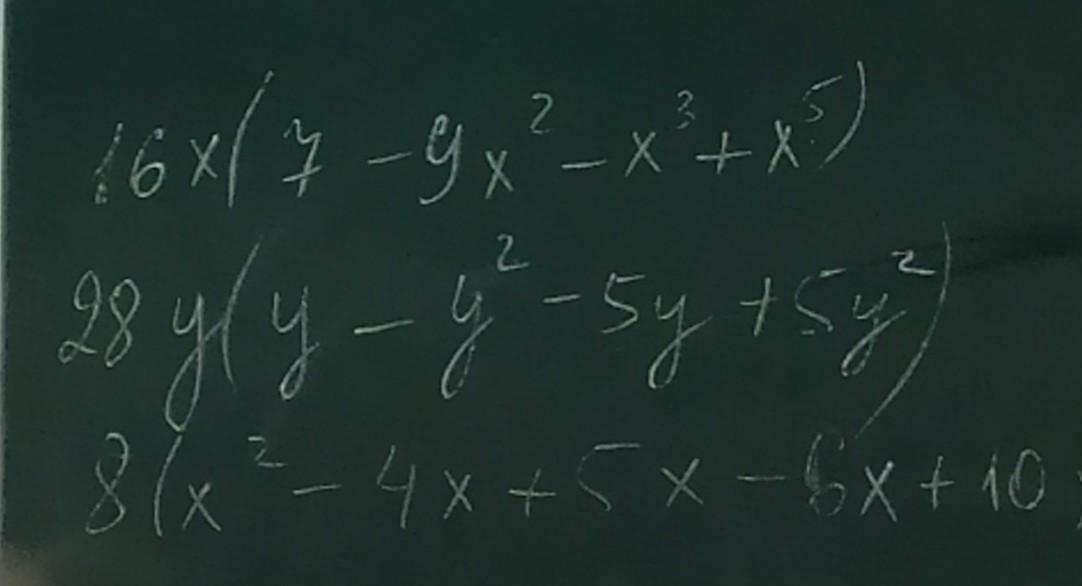 16x(7 - 9x² - x³ + x⁵)
28y(y - y² - 5y + 5y²)
8(x² - 4x + 5x - 6x + 10